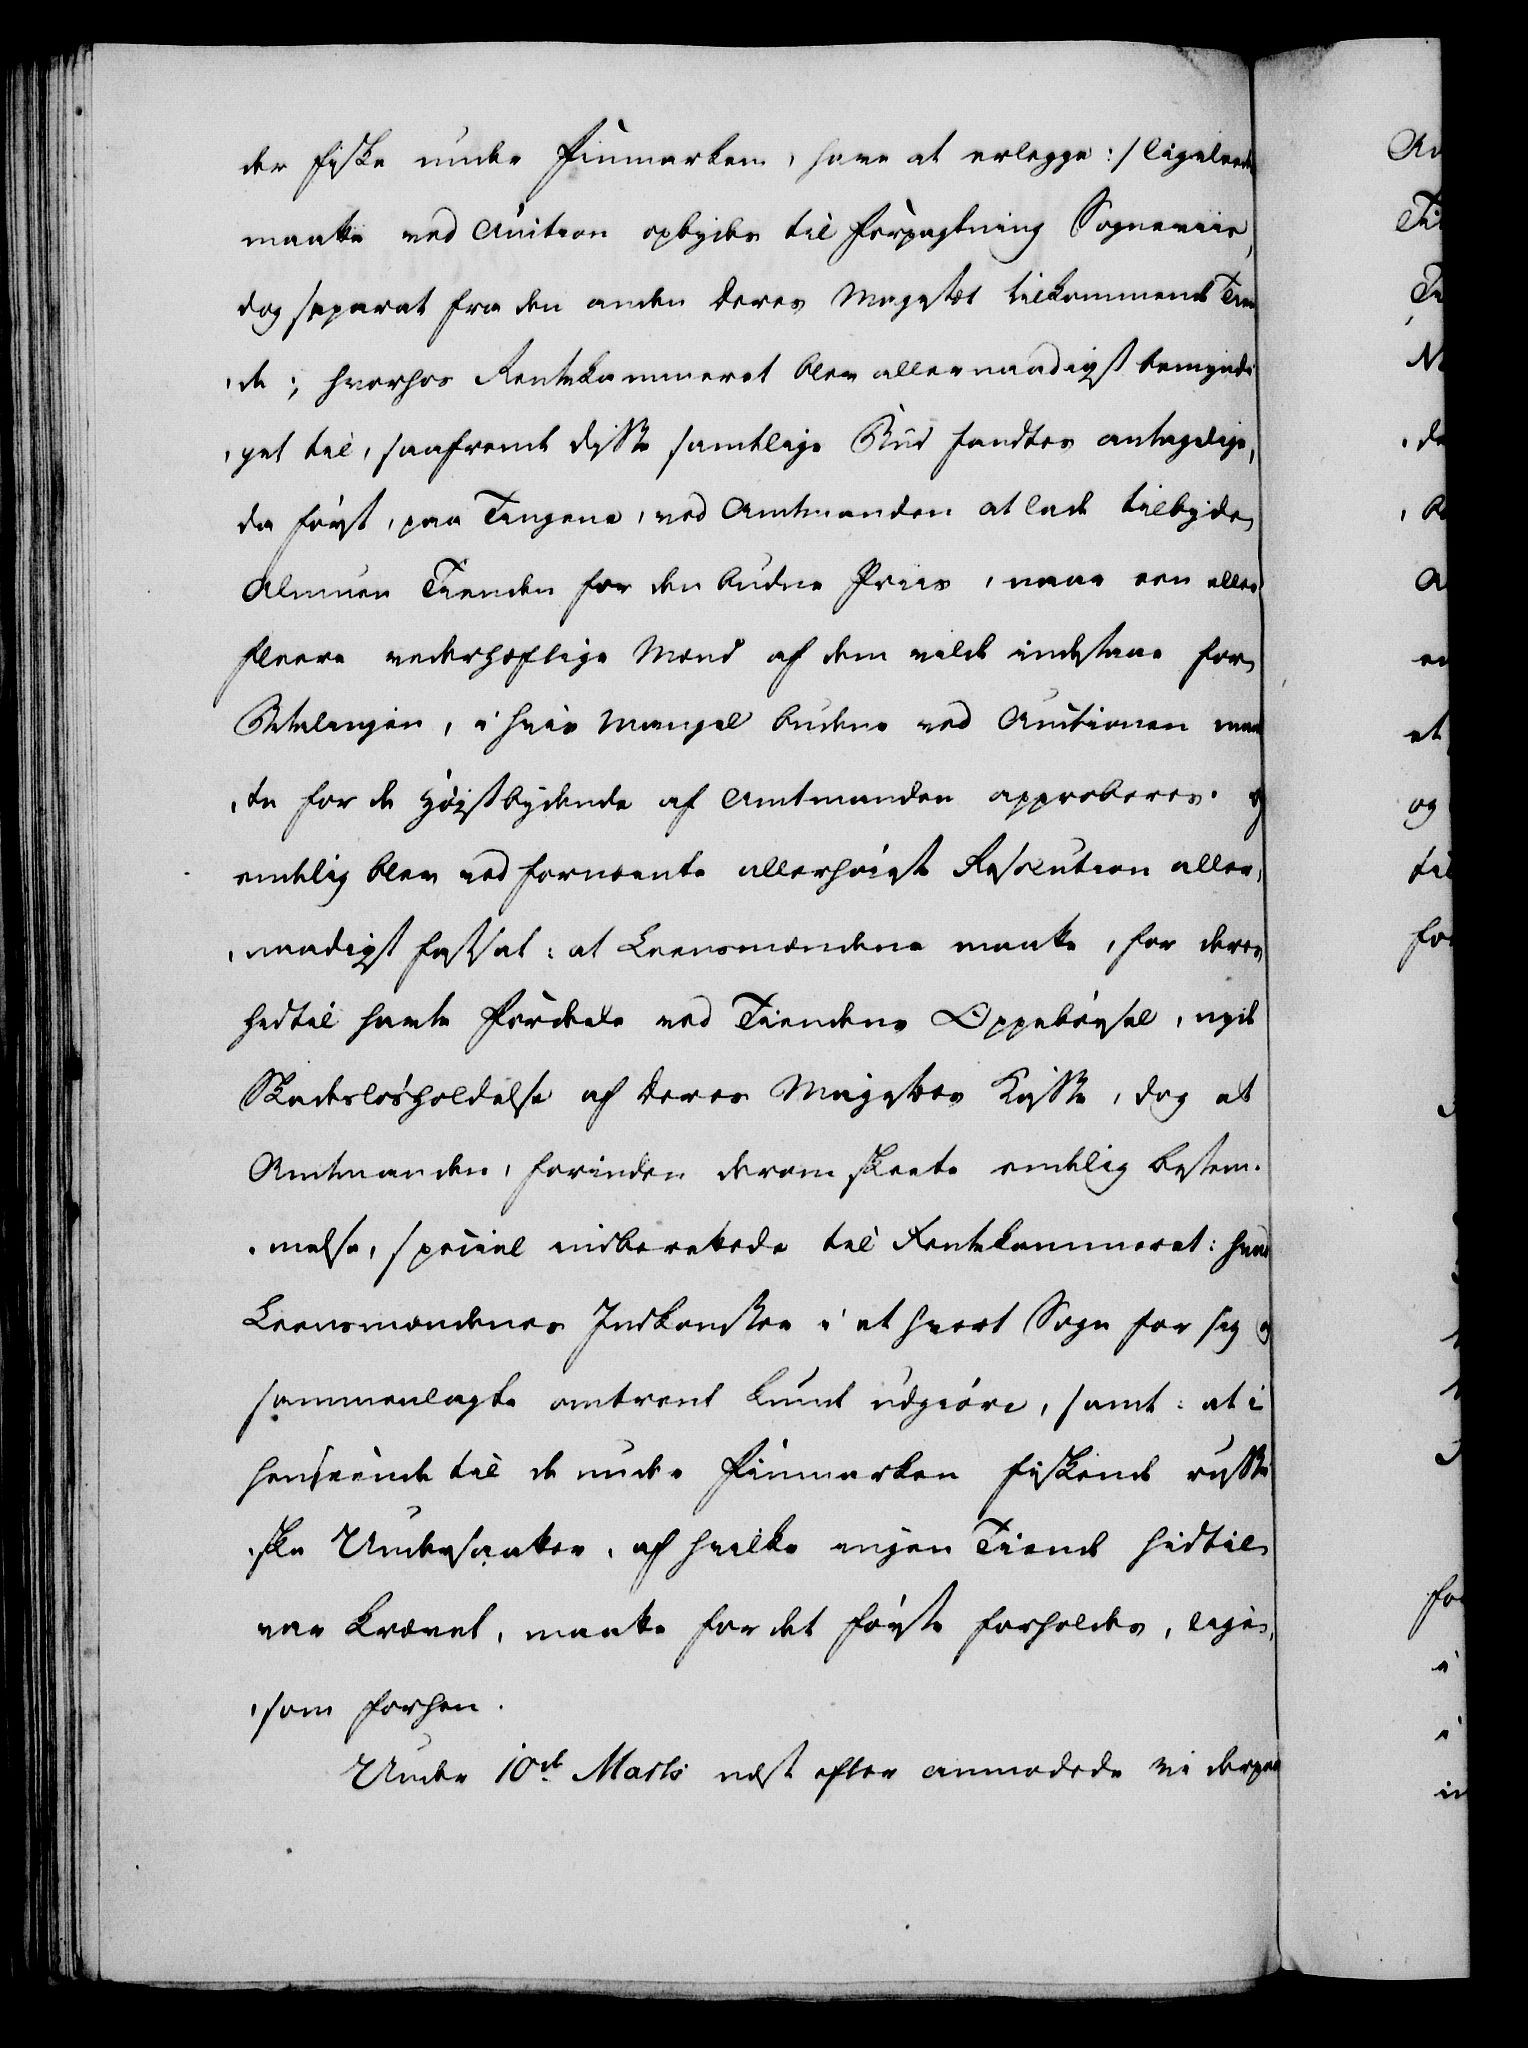 der fiske under Finmarken, have at erlegge :/ ligeleedes
maatte ved Auction opbydes til Forpagtning Sogneviis,
dog separat fra den anden Deres Majestet tilkommende Tien¬
¬de ; hvorhos Rentekammeret blev allernaadigst bemyndi¬
¬get til, saafremt disse samtlige Bud fandtes antagelige,
da først, paa Tingene, ved Amtmanden at lade tilbyde
Almuen Tienden for den budne Priis, naar een eller
fleere vederhæftige Mænd af dem vilde indestaae for
Betalingen, i hvis Mangel Budene ved Auctionen maat¬
¬te for de Høistbydende af Amtmanden approberes. Og
endelig blev ved fornævnte allerhøieste Resolution aller¬
¬naadigst fastsat : at Leensmændene maatte, for deres
hidtil havte Fordeele ved Tiendens Oppebørsel, nyde
Skadesløsholdelse af Deres Majestæts Kasse, dog at
Amtmanden, forinden derom skeete endelig Bestem¬
¬melse, special indberettede til Rentekammeret : hvad
Leensmændenes Indkomster i et hvert Sogn for sig og
sammenlagte omtrent kunde udgiøre, samt : at i
henseende til de under Finmarken fiskende russi¬
¬ske Undersaatter, af hvilke ingen Tiende hidtil
var krævet, maatte for det første forholdes, lige¬
¬som forhen.
Under 10de Martii næst efter anmodede vi derpaa